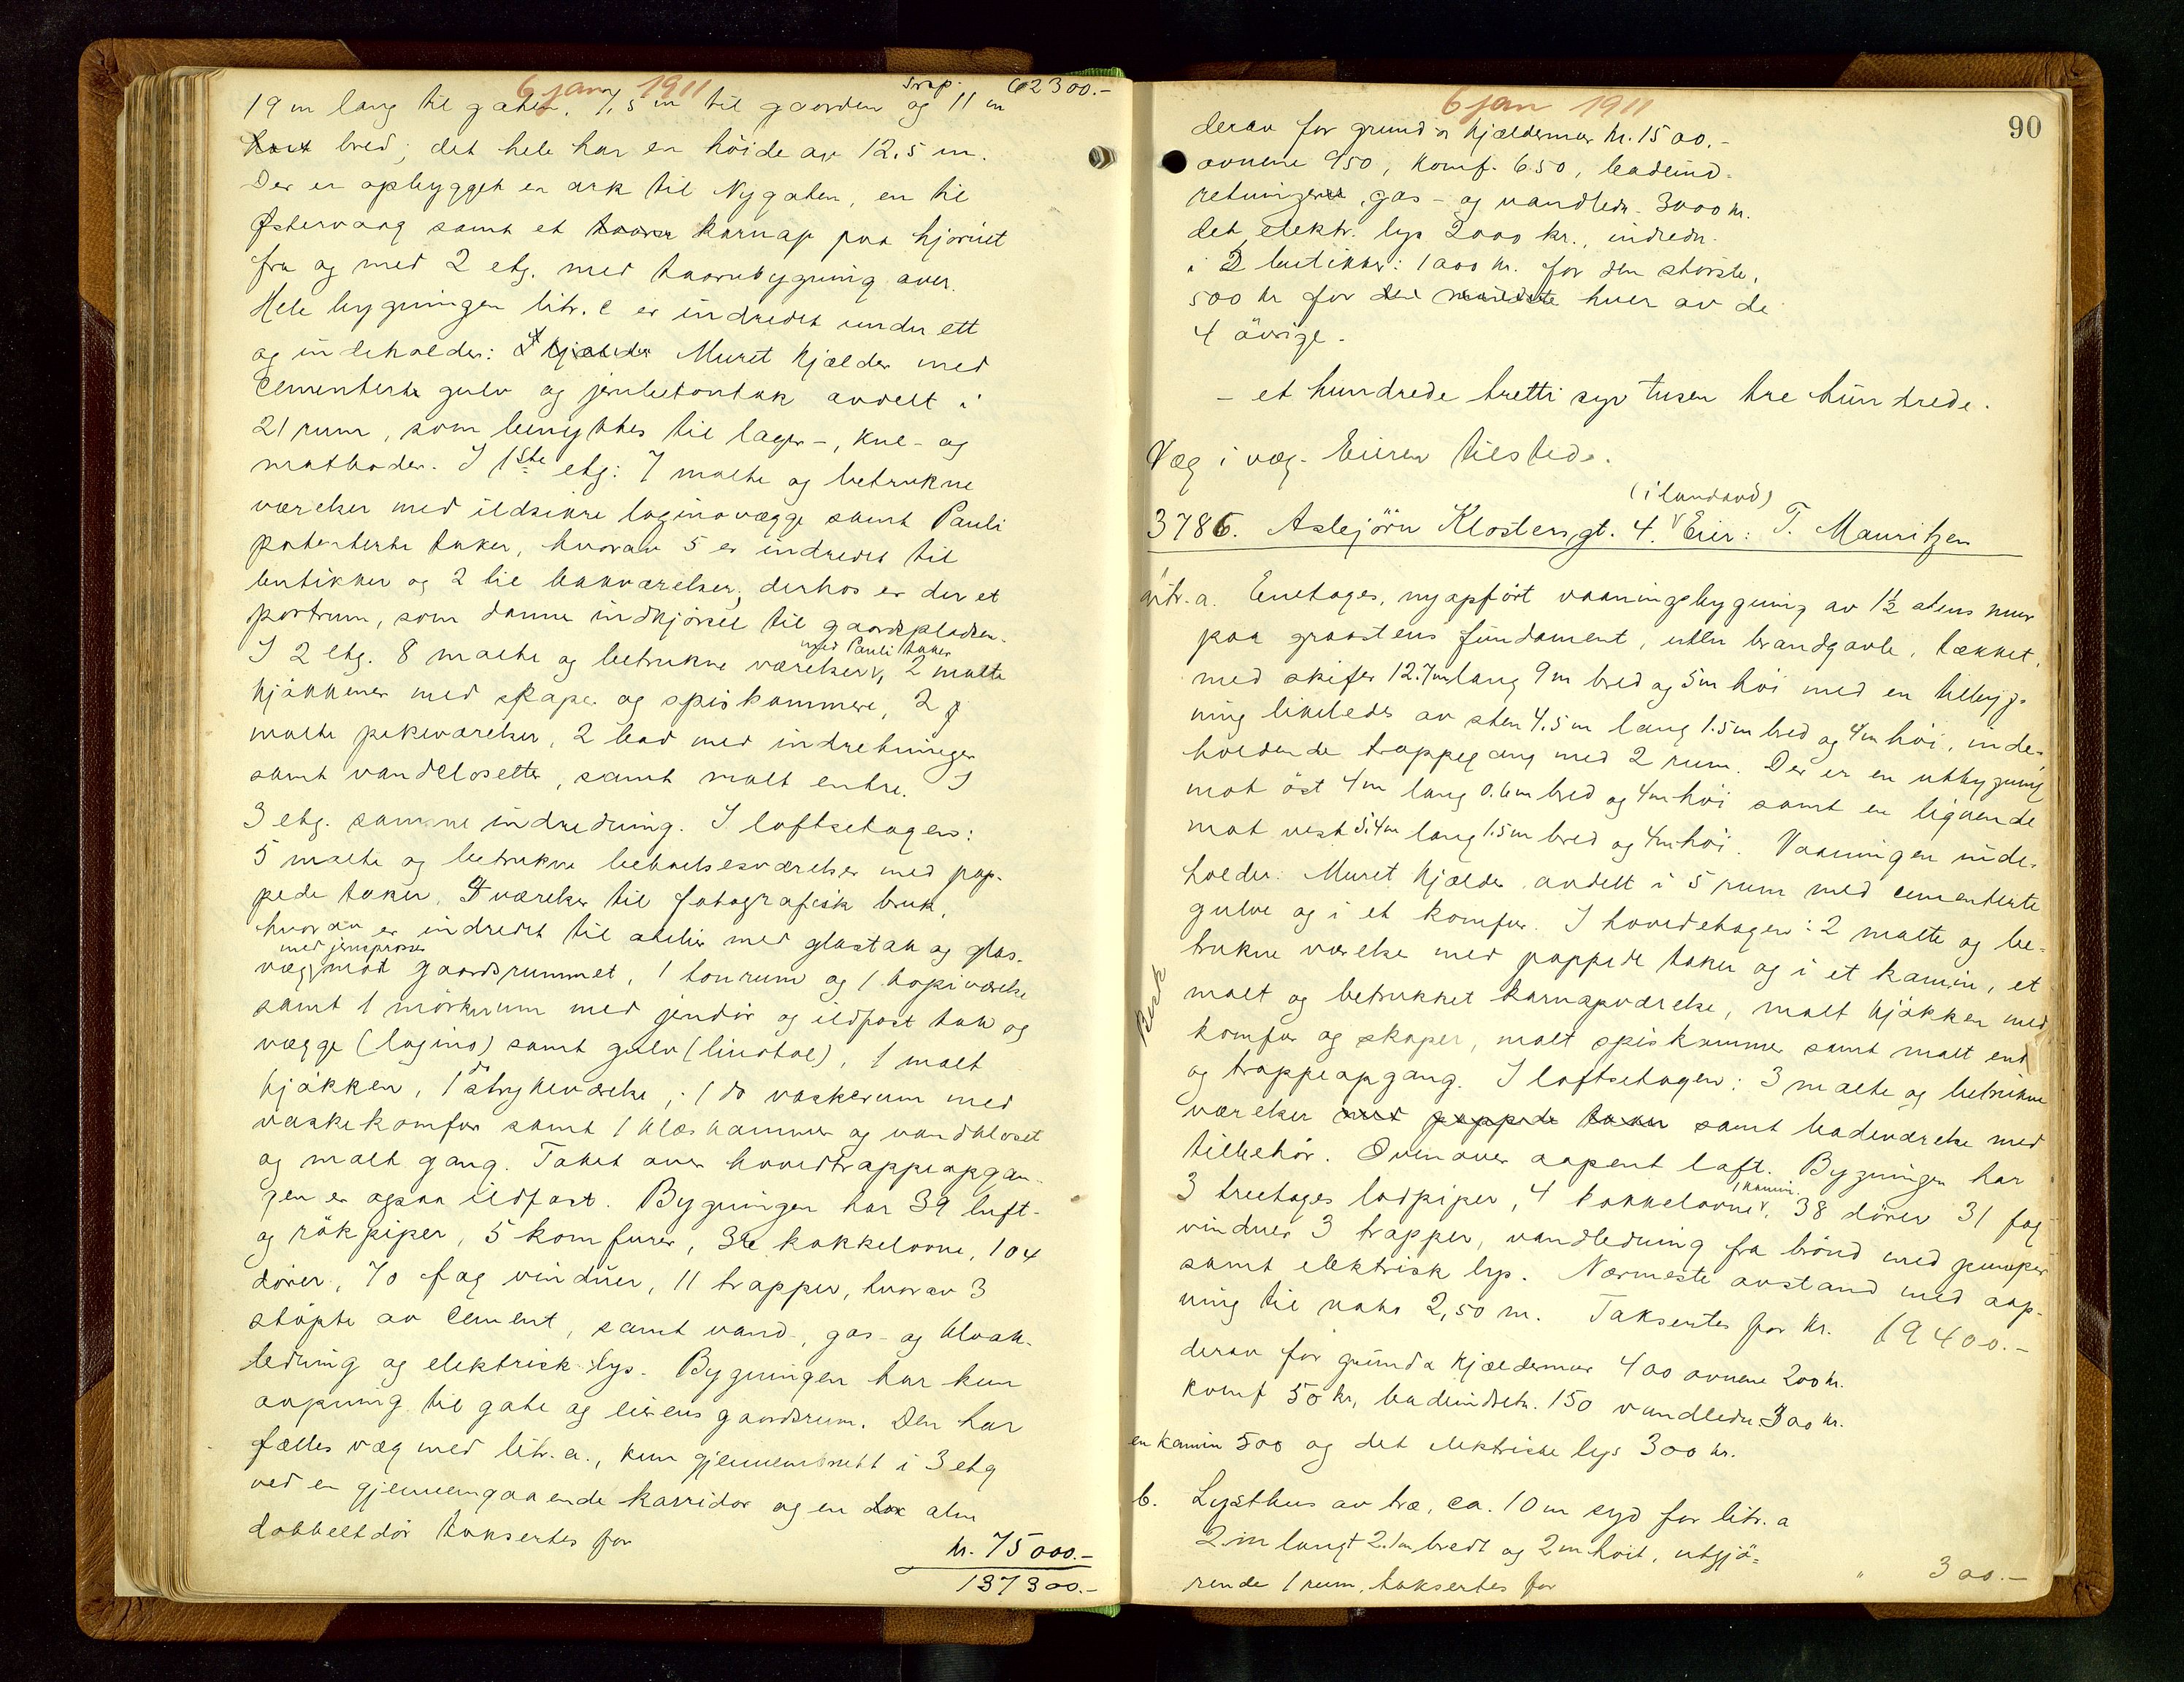 6 jan 1911
Trsp. 62300.-
19 m lang til gaten, 7,5 m til gaarden og 11 m
bred; det hele har en höide av 12,5 m.
Der er opbygget en ark til Nygaten, en til
Østervaag samt et karnap paa hjörnet
fra og med 2 etg. med taarnbygning over.
Hele bygningen litr. c er indredet under ett
og indeholder: Muret kjælder med
cementerte gulv og jernbetontak avdelt i
21 rum, som benyttes til lager-, kul- og
matboder. I 1ste etg: 7 malte og betrukne
værelser med ildsikre luginovægge samt Pauli
patenterte taker, hvorav 5 er indredet til
butikker og 2 til bakværelser, derhos er der et
portrum, som danne indkjörsel til gaardspladsen.
I 2 etg. 8 malte og betrukne værelser, med Pauli taker 2 malte
kjökkener med skaper og spiskammere, 2
malte pikeværelser, 2 bad med indretninger
samt vandclosetter, samt malt entre. I
3 etg. samme indredning. I loftsetagen:
5 malte og betrukne beboelsesværelser med pap-
pede taker, 4 værelser til fotografisk bruk,
hvorav er indredet til atelier med glastak og glas-
væg med jernsprosser mot gaardsrummet, 1 tonrum og 1 kopiværelse
samt 1 mörkrum med jerndör og ildfast tak og
vægge (lugino) samt gulv (linotol), 1 malt
kjökken, 1 do strykeværelse, 1 do vaskerum med
vaskekomfur samt 1 klæskammer og vandkloset
og malt gang. Taket over hovedtrappeopgan-
gen er ogsaa ildfast. Bygningen har 39 luft-
og rökpiper, 5 komfurer, 32 kakkelovne, 104
dörer, 70 fag vinduer, 11 trapper, hvorav 3
stöpte av cement, samt vand-, gas- og kloak-
ledning og elektrisk lys. Bygningen har kun
aapning til gate og eierens gaardsrum. Den har
fælles væg med litr. a., kun gjennembrutt i 3 etg
ved en gjennemgaaende korridor og en alm
dobbeltdör taksertes for
kr. 75000.-
137300.-
6 jan 1911
90
derav for grund & kjældermur kr. 1500.-
ovnene 950, komf. 650, badeind-
retningene, gas- og vandledn. 3000 kr.
det elektr. lys 2000 kr., indredn.
i 2 butikker: 1000 kr. for den störste,
500 kr for hver av de
4 övrige.
- et hundrede tretti syv tusen tre hundrede.
Væg i væg. Eieren tilstede.
3786. Asbjörn Klostersgt. 4. (i landavd) Eier: T. Mauritzen
litr. a. Enetages, nyopfört vaaningsbygning av 1½ stens mur
paa graastens fundament, uten brandgavle, tækket
med skifer 12.7m lang 9m bred og 5m höi med en tilbyg-
ning likeledes av sten 4.5m lang 1.5m bred og 4m höi, inde-
holdende trappegang med 2 rum. Der er en utbygning
mot öst 4m lang 0.6m bred og 4m höi samt en lignende
mot vest 5.4m lang 1.5m bred og 4m höi. Vaaningen inde-
holder: Muret kjælder avdelt i 5 rum med cementerte
gulve og i et komfur. I hovedetagen: 2 malte og be-
trukne værelse med pappede taker og i et kamin, et
malt og betrukket karnapværelse, malt kjökken med
komfur og skaper, malt spiskammer samt malt ent
og trappeopgang. I loftsetagen: 3 malte og betrukne
værelser med pappede taker samt badeværelse med
tilbehör. Ovenover aapent loft. Bygningen har
3 treetages lodpiper, 4 kakkelovne, 1 kamin, 38 dörer 31 fag
vinduer 3 trapper, vandledning fra brönd med pumper
samt elektrisk lys. Nærmeste avstand med aap-
ning til nabo 2,50 m. Taksertes for kr. 19400.-
derav for grund & kjældermur 400 ovnene 200 kr.
komf 50 kr, badeindretn. 150 vandledn. 300 kr.
en kamin 500 og det elektriske lys 300 kr.
b. Lysthus av træ, ca. 10 m syd for litr. a
2 m langt 2.1m bredt og 2 m höit, utgjö-
rende 1 rum, taksertes for " 300.-